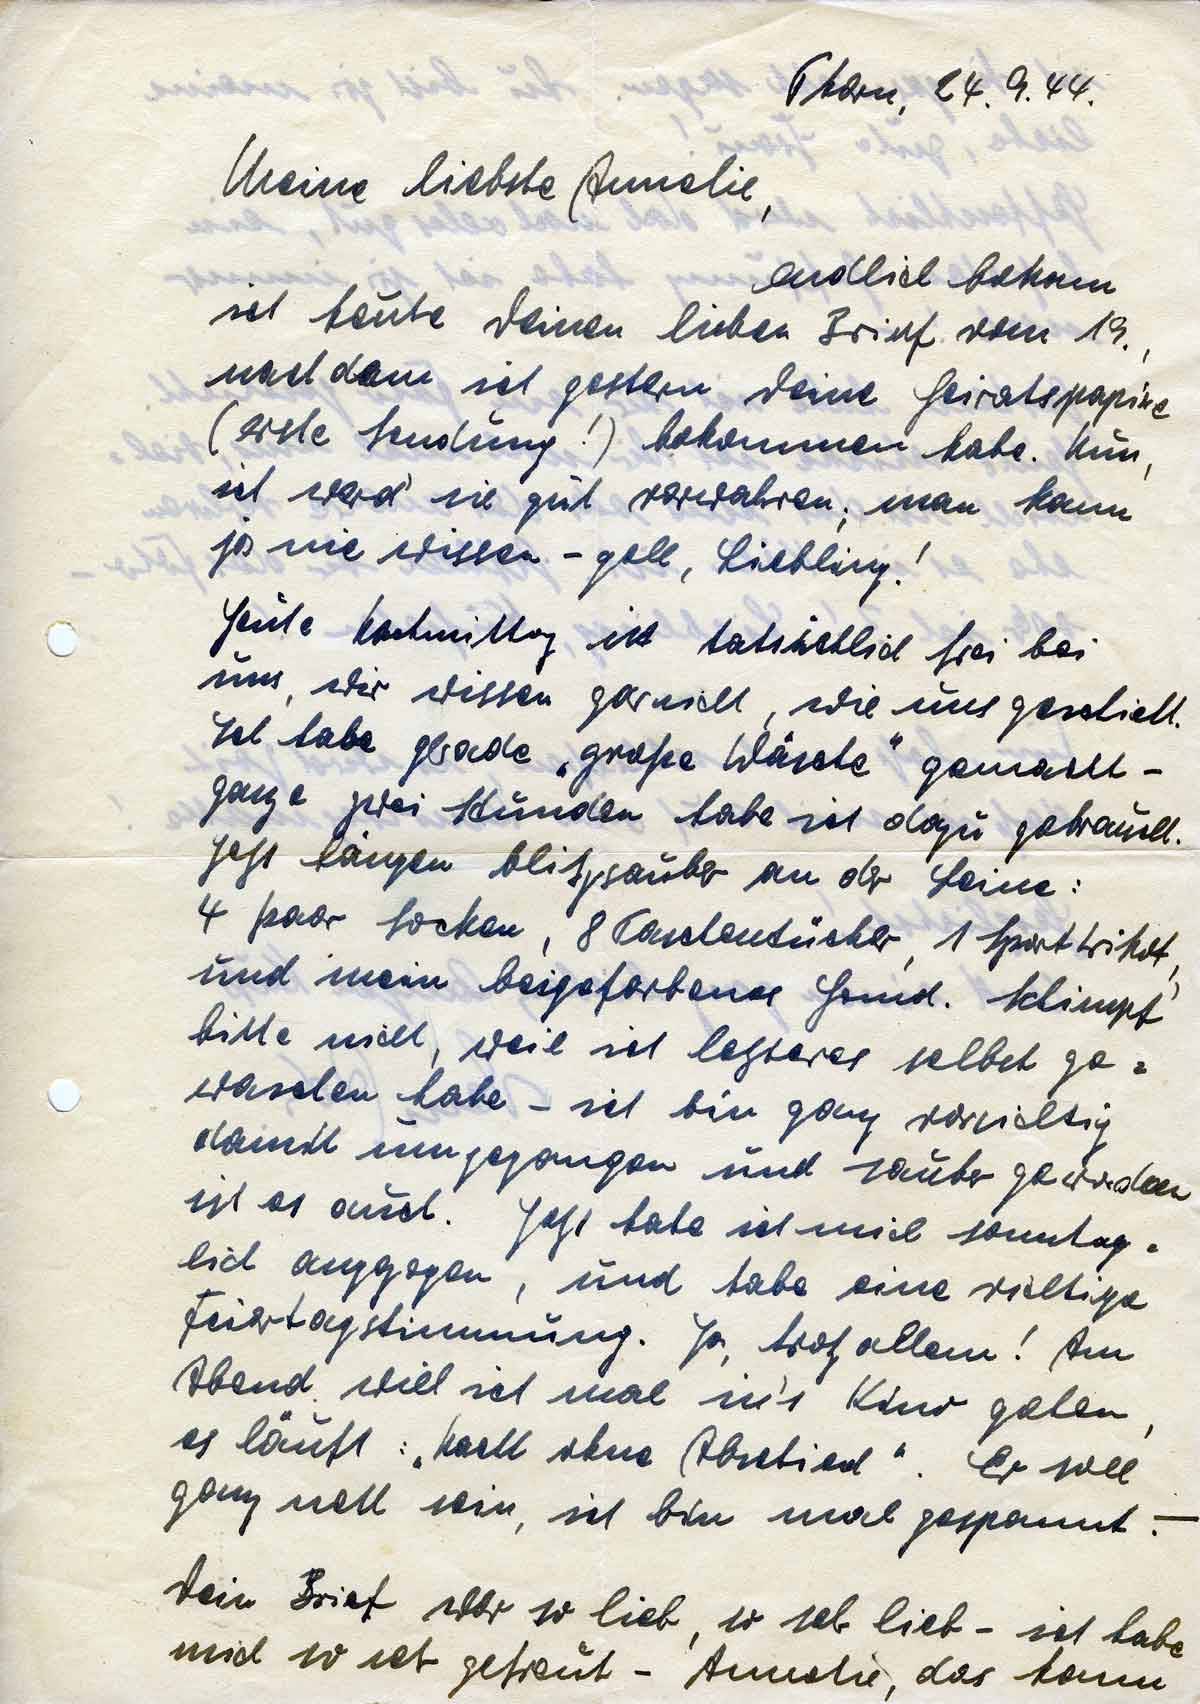 Thorn, 24.9.44.
Meine liebste Annelie,
endlich bekam
ich heute Deinen lieben Brief vom 19.,
nachdem ich gestern Deine Heiratspapiere
(erste Sendung!) bekommen habe. Nun,
ich werd' sie gut verwahren; man kann
ja nie wissen – gell, Liebling!
Heute Nachmittag ist tatsächlich frei bei
uns, wir wissen garnicht, wie uns geschieht.
Ich habe gerade „große Wäsche" gemacht –
ganze zwei Stunden habe ich dazu gebraucht.
Jetzt hängen blitzsauber an der Leine:
4 Paar Socken, 8 Taschentücher, 1 Sporttrikot,
und mein beigefarbenes Hemd. Schimpf'
bitte nicht, weil ich letzteres selbst ge=
waschen habe – ich bin ganz vorsichtig
damit umgegangen und sauber geworden
ist es auch. Jetzt habe ich mich sonntäg=
lich angezogen, und habe eine richtige
Feiertagstimmung. Ja, trotz allem! Am
Abend will ich mal in's Kino gehen,
es läuft: „Nacht ohne Abschied". Er soll
ganz nett sein, ich bin mal gespannt. –
Dein Brief war so lieb, so sehr lieb – ich habe
mich so sehr gefreut – Annelie, das kann